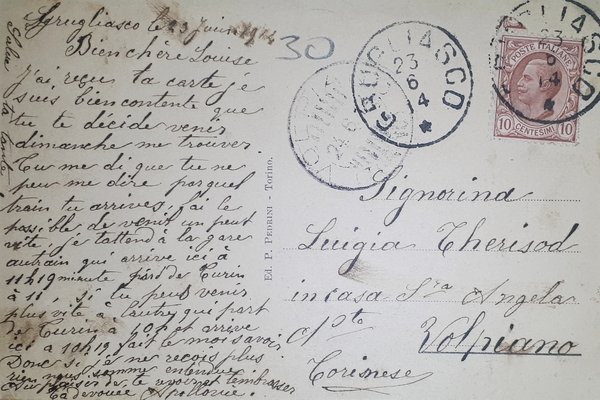 Grugliasco le 23 Juin 1914
Bien chère Louise
J'ai reçu ta carte je
suis bien contente que
tu te décide venir
dimanche me trouver.
Tu me di que tu ne
peu me dire par quel
train tu arrives, fai le
possible de venir un peut
vite, je t'attend à la gare
au train qui arrive ici à
11h19 minute, part de Turin
à 11, si tu peut venir
plus vite à l'autre que part
de Turin à 10h et arrive
ici à 10h19 fait le moi savoir
Donc si je ne reçois plus
rien nous somme entendue
Au plaisir de te voir et t'embrasser
Ta dévouée
Salue ta tante
30
GRUGLIASCO
23
6
14
GRUGLIASCO
23
6
14
24 6
POSTE ITALIANE
10 CENTESIMI 10
Ed. P. PEDRINI - Torino.
Signorina
Luigia Therisod
in casa Sra Angela
Volpiano
Torinese